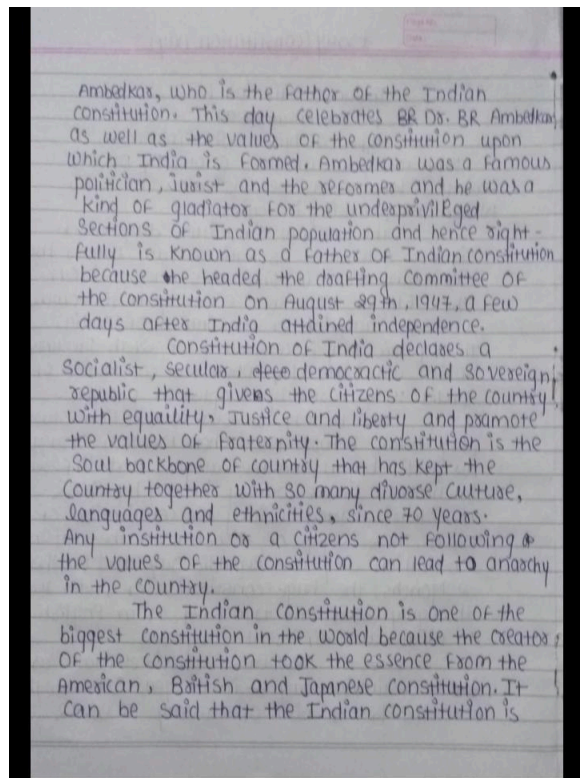 Ambedkar, who is the father of the Indian
constitution. This day celebrates BR Dr. BR Ambedkar
as well as the values of the constitution upon
which India is formed. Ambedkar was a famous
politician, jurist and the reformer and he was a
kind of gladiator for the underprivileged
sections of Indian population and hence right-
fully is known as a father of Indian constitution
because he headed the drafting committee of
the constitution on August 29th, 1947, a few
days after India attained independence.
Constitution of India declares a
socialist, secular, deco democractic and sovereign
republic that givens the citizens of the country
with equaility, Justice and liberty and pramote
the values of fraternity. The constitution is the
soul backbone of country that has kept the
country together with so many divorse culture,
languages and ethnicities, since 70 years.
Any institution or a citizens not following
the values of the constitution can lead to anarchy
in the country.
The Indian constitution is one of the
biggest constitution in the world because the creator
of the constitution took the essence from the
American, British and Japanese constitution. It
can be said that the Indian constitution is